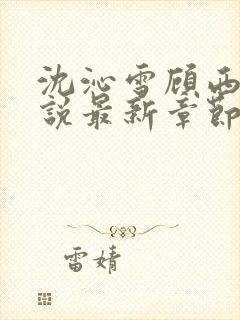 沈沁雪顾西
说最新章节
雷婧